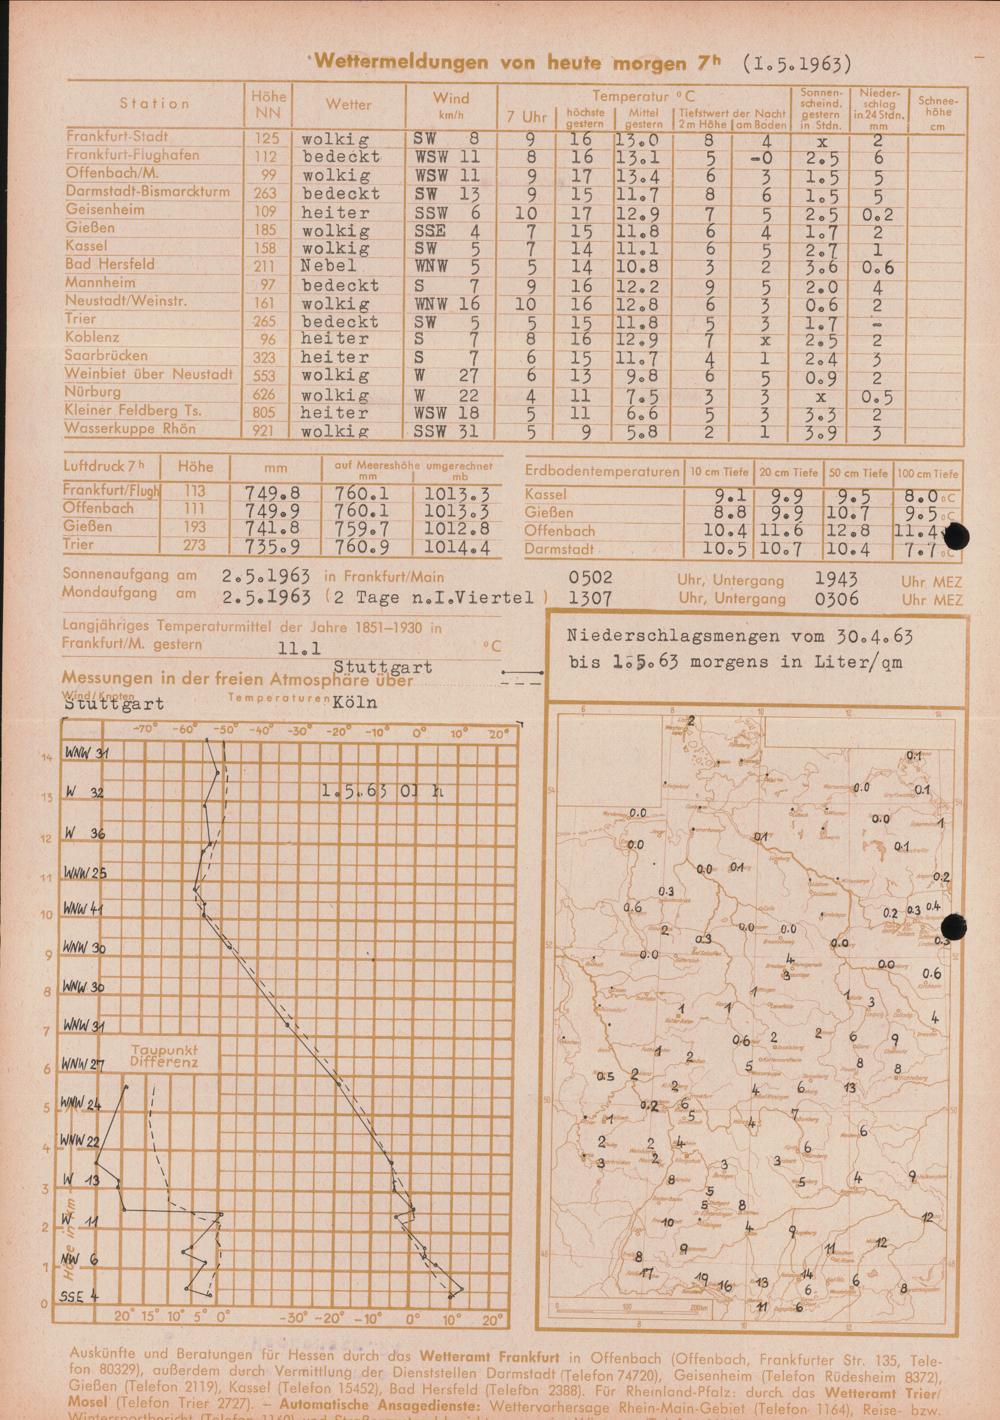 Wettermeldungen von heute morgen 7h (1.5.1963)
Station Höhe NN Wetter Wind km/h Temperatur °C Sonnen-scheind. gestern in Stdn. Nieder-schlag in 24 Stdn. mm Schnee-höhe cm
7 Uhr höchste gestern Mittel gestern Tiefstwert der Nacht 2 m Höhe am Boden
Frankfurt-Stadt 125 wolkig SW 8 9 16 13.0 8 4 x 2
Frankfurt-Flughafen 112 bedeckt WSW 11 8 16 13.1 5 -0 2.5 6
Offenbach/M. 99 wolkig WSW 11 9 17 13.4 6 3 1.5 5
Darmstadt-Bismarckturm 263 bedeckt SW 13 9 15 11.7 8 6 1.5 5
Geisenheim 109 heiter SSW 6 10 17 12.9 7 5 2.5 0.2
Gießen 185 wolkig SSE 4 7 15 11.8 6 4 1.7 2
Kassel 158 wolkig SW 5 7 14 11.1 6 5 2.7 1
Bad Hersfeld 211 Nebel WNW 5 5 14 10.8 3 2 3.6 0.6
Mannheim 97 bedeckt S 7 9 16 12.2 9 5 2.0 4
Neustadt/Weinstr. 161 wolkig WNW 16 10 16 12.8 6 3 0.6 2
Trier 265 bedeckt SW 5 5 15 11.8 5 3 1.7 -
Koblenz 96 heiter S 7 8 16 12.9 7 x 2.5 2
Saarbrücken 323 heiter S 7 6 15 11.7 4 1 2.4 3
Weinbiet über Neustadt 553 wolkig W 27 6 13 9.8 6 5 0.9 2
Nürburg 626 wolkig W 22 4 11 7.5 3 3 x 0.5
Kleiner Feldberg Ts. 805 heiter WSW 18 5 11 6.6 5 3 3.3 2
Wasserkuppe Rhön 921 wolkig SSW 31 5 9 5.8 2 1 3.9 3
Luftdruck 7h Höhe mm auf Meereshöhe umgerechnet mm mb
Frankfurt/Flugh 113 749.8 760.1 1013.3
Offenbach 111 749.9 760.1 1013.3
Gießen 193 741.8 759.7 1012.8
Trier 273 735.9 760.9 1014.4
Erdbodentemperaturen 10 cm Tiefe 20 cm Tiefe 50 cm Tiefe 100 cm Tiefe
Kassel 9.1 9.9 9.5 8.0 °C
Gießen 8.8 9.9 10.7 9.5 °C
Offenbach 10.4 11.6 12.8 11.4
Darmstadt 10.5 10.7 10.4 7.7 °C
Sonnenaufgang am 2.5.1963 in Frankfurt/Main 0502 Uhr, Untergang 1943 Uhr MEZ
Mondaufgang am 2.5.1963 (2 Tage n.I.Viertel) 1307 Uhr, Untergang 0306 Uhr MEZ
Langjähriges Temperaturmittel der Jahre 1851–1930 in
Frankfurt/M. gestern 11.1 °C
Stuttgart
Messungen in der freien Atmosphäre über
Wind/Knoten Temperaturen Köln
Stuttgart
-70° -60° -50° -40° -30° -20° -10° 0° 10° 20°
14 WNW 31
1.5.63 01 h
13 W 32
12 W 36
11 WNW 25
10 WNW 41
9 WNW 30
8 WNW 30
7 WNW 31
Taupunkt
Differenz
6 WNW 27
5 WNW 24
4 WNW 22
3 W 13
2 W 11
1 NW 6
0 SSE 4
Höhe in km
20° 15° 10° 5° 0° -30° -20° -10° 0° 10° 20°
Niederschlagsmengen vom 30.4.63
bis 1.5.63 morgens in Liter/qm
2
0.1
0.0 0.1
0.0
0.0 1
0.1
0.0 0.1
0.0 0.1
0.2
0.3
0.6 0.2 0.3 0.4
2 0.0 0.0
0.3 0.0 0.3
0.0 4 0.0
3 0.6
1 1 3
1 1 4
0.6 2 2 6 9
1 2
5 8 8
0.5 2
2 4 6 13
0.2 6
1 5 4 7
6
2 2 4 6
3 2 3 3
8 5 4 9
5
5 8
10 4 9 12
8 9 11 12
17 19 16 13 14 6 8
6
11 6
Auskünfte und Beratungen für Hessen durch das Wetteramt Frankfurt in Offenbach (Offenbach, Frankfurter Str. 135, Tele-
fon 80329), außerdem durch Vermittlung der Dienststellen Darmstadt (Telefon 74720), Geisenheim (Telefon Rüdesheim 8372),
Gießen (Telefon 2119), Kassel (Telefon 15452), Bad Hersfeld (Telefon 2388). Für Rheinland-Pfalz: durch das Wetteramt Trier/
Mosel (Telefon Trier 2727). – Automatische Ansagedienste: Wettervorhersage Rhein-Main-Gebiet (Telefon 1164), Reise- bzw.